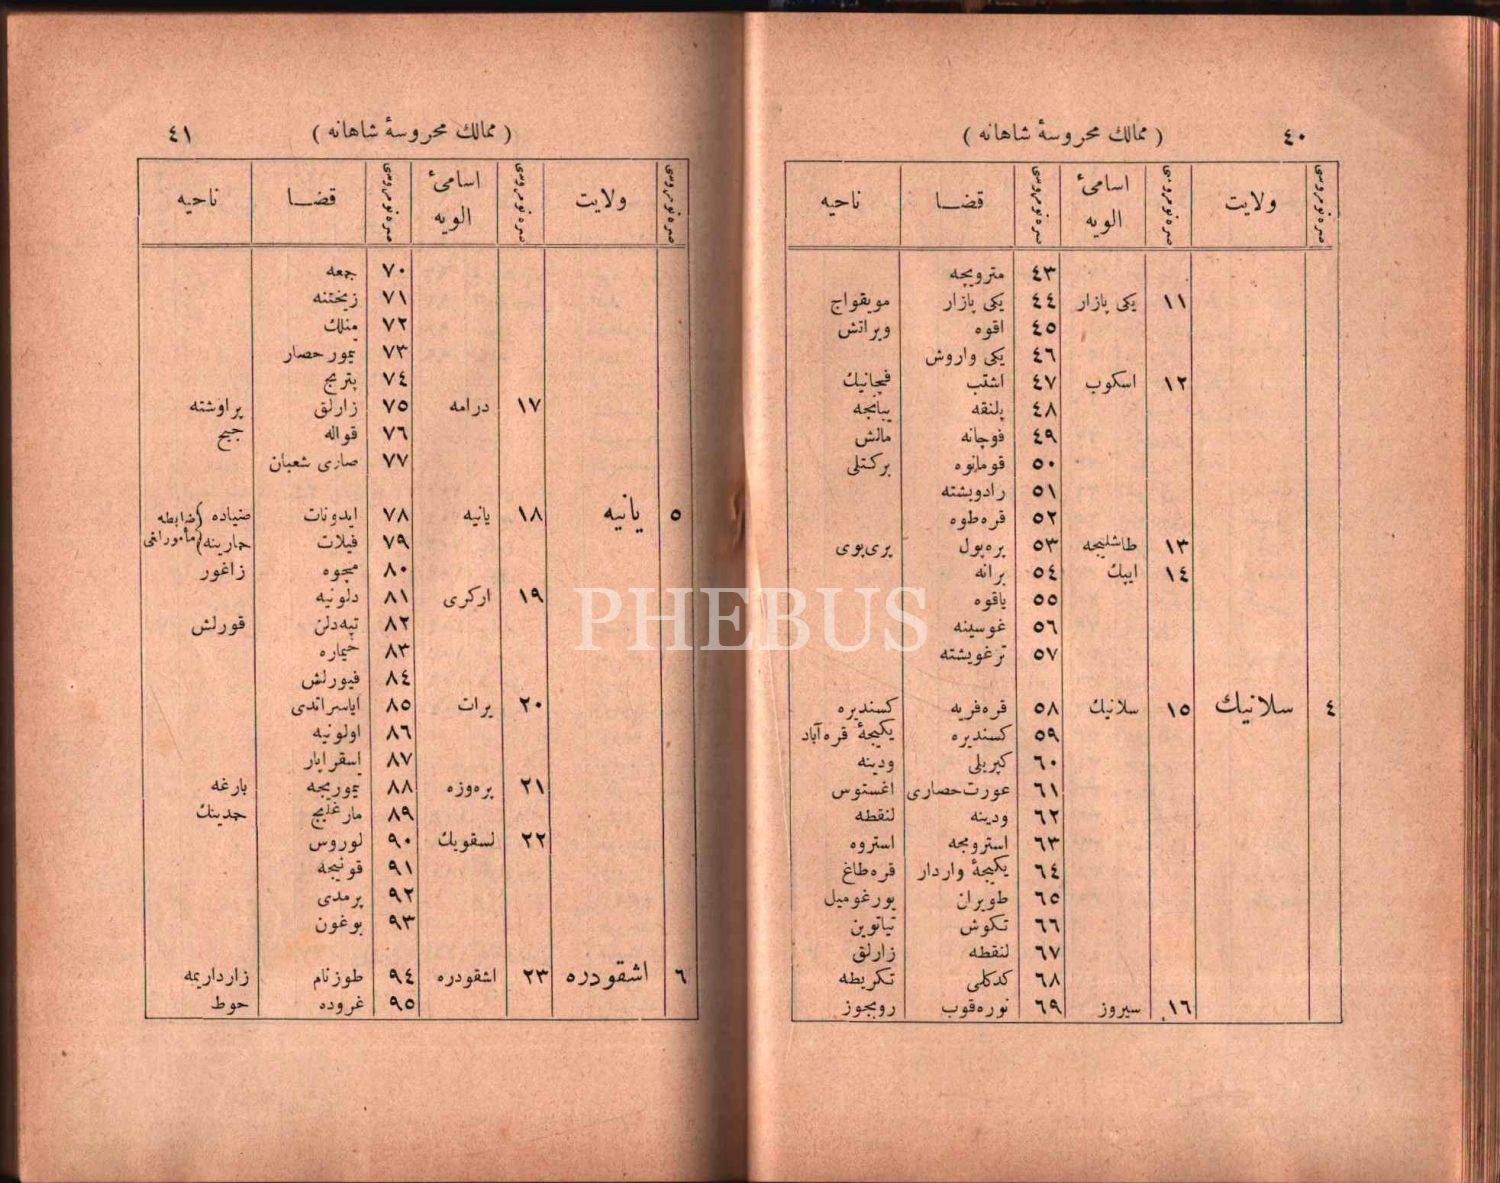 ٤٠ ( ممالك محروسهٔ شاهانه )
نمره نومروسى ولايت نمره نومروسى اسامئ الويه نمره نومروسى قضا ناحيه
٤٣ مترويچه
١١ يكى بازار ٤٤ يكى بازار مويقواج
٤٥ اقوه ويرانش
٤٦ يكى واروش
١٢ اسكوب ٤٧ اشتب قچانيك
٤٨ پلنقه يبانجه
٤٩ قوچانه مالش
٥٠ قومانوه بركتلى
٥١ رادويشته
٥٢ قره‌طوه
١٣ طاشليجه ٥٣ پره‌پول پرى‌پوى
١٤ ايپك ٥٤ برانه
٥٥ ياقوه
٥٦ غوسينه
٥٧ ترغويشته
٤ سلانيك ١٥ سلانيك ٥٨ قره‌فريه كسنديره
٥٩ كسنديره يكيجهٔ قره‌آباد
٦٠ كپريلى ودينه
٦١ عورت‌حصارى اغستوس
٦٢ ودينه لنقطه
٦٣ استرومجه استروه
٦٤ يكيجهٔ واردار قره‌طاغ
٦٥ طويران بورغوميل
٦٦ تكوش تياتوين
٦٧ لنقطه زارلق
٦٨ كدكلى تكريطه
١٦ سيروز ٦٩ نوره‌قوب رويجوز
( ممالك محروسهٔ شاهانه ) ٤١
نمره نومروسى ولايت نمره نومروسى اسامئ الويه نمره نومروسى قضا ناحيه
٧٠ جمعه
٧١ زيختنه
٧٢ منلك
٧٣ تيمورحصار
٧٤ پتريچ
١٧ درامه ٧٥ زارلق پراوشته
٧٦ قواله جيج
٧٧ صارى شعبان
٥ يانيه ١٨ يانيه ٧٨ ايدونات صنياده ضابطه
٧٩ فيلات جمارينه مأمورلغى
٨٠ مجوه زاغور
١٩ اركرى ٨١ دلونيه
٨٢ تپه‌دلن قورلش
٨٣ خيماره
٨٤ فيورلش
٢٠ برات ٨٥ اياسراندى
٨٦ اولونيه
٨٧ اسقراپار
٢١ پره‌وزه ٨٨ تيموريجه بارغه
٨٩ مارغليچ جدينك
٢٢ لسقويك ٩٠ لوروس
٩١ قونيجه
٩٢ پرمدى
٩٣ بوغون
٦ اشقودره ٢٣ اشقودره ٩٤ طوزنام زارداريمه
٩٥ غروده حوط
PHEBUS